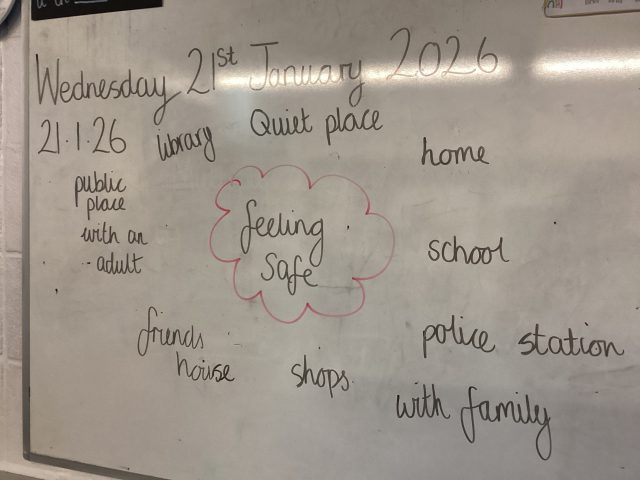 Wednesday 21st January 2026
21.1.26
library
Quiet place
home
public
place
with an
adult
feeling
safe
school
friends
house
shops
police station
with family